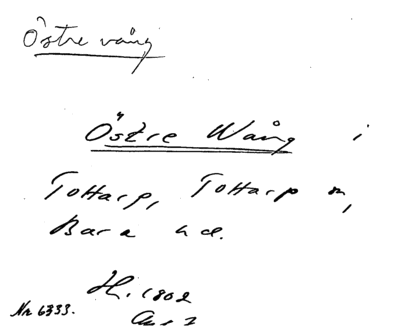 Östre vång
Östre Wång i
Tottarp, Tottarp sn,
Bara hd.
H. 1802
Nr 6333.